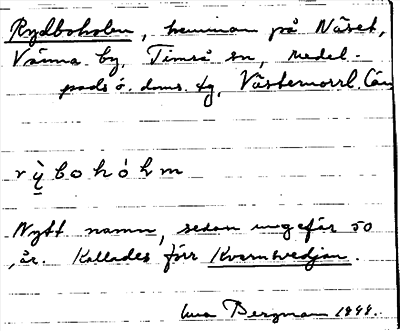 Rydboholm, hemman på Näset,
Vänna by, Timrå sn, Medel-
pads ö. doms. tg, Västernorrl. län
r ỳ̠ b o h ó l m
Nytt namn, sedan ungefär 50
år. Kallades förr Kvarnsvedjan.
Bergman 1944.